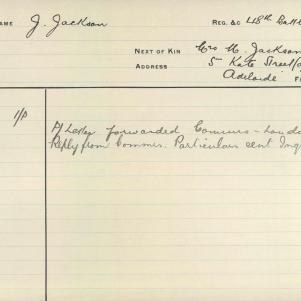 NAME J. Jackson
REG. &C 48th Batt
NEXT OF KIN Mrs M. Jackson
ADDRESS 5 Kate Street
Adelaide
P/Letter forwarded Commrs - Lond
Reply from Commrs. Particulars sent Inq